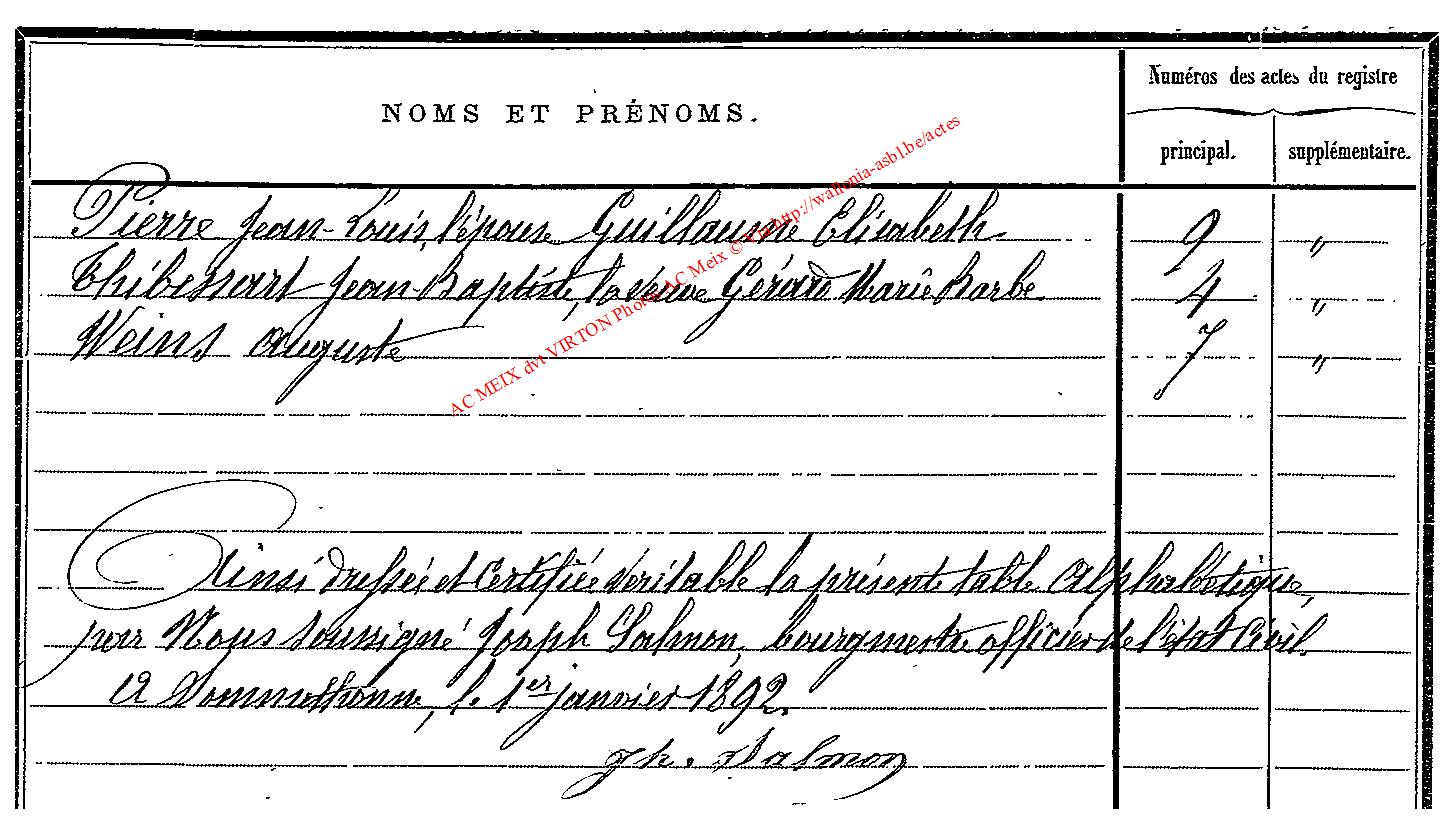 Numéros des actes du registre
NOMS ET PRÉNOMS.
principal. supplémentaire.
AC MEIX dvt VIRTON Photo AC Meix © Via http://wallonia-asbl.be/actes
Pierre Jean-Louis, l'épouse Guillaume Elisabeth 9 "
Thibessart Jean-Baptiste, la veuve Gérard Marie Barbe 4 "
Weins Auguste 7 "
Ainsi dressée et certifiée véritable la présente table alphabétique,
par Nous soussigné Joseph Salmon, bourgmestre officier de l'état Civil.
A Sommethonne, le 1er janvier 1892.
Jh. Salmon